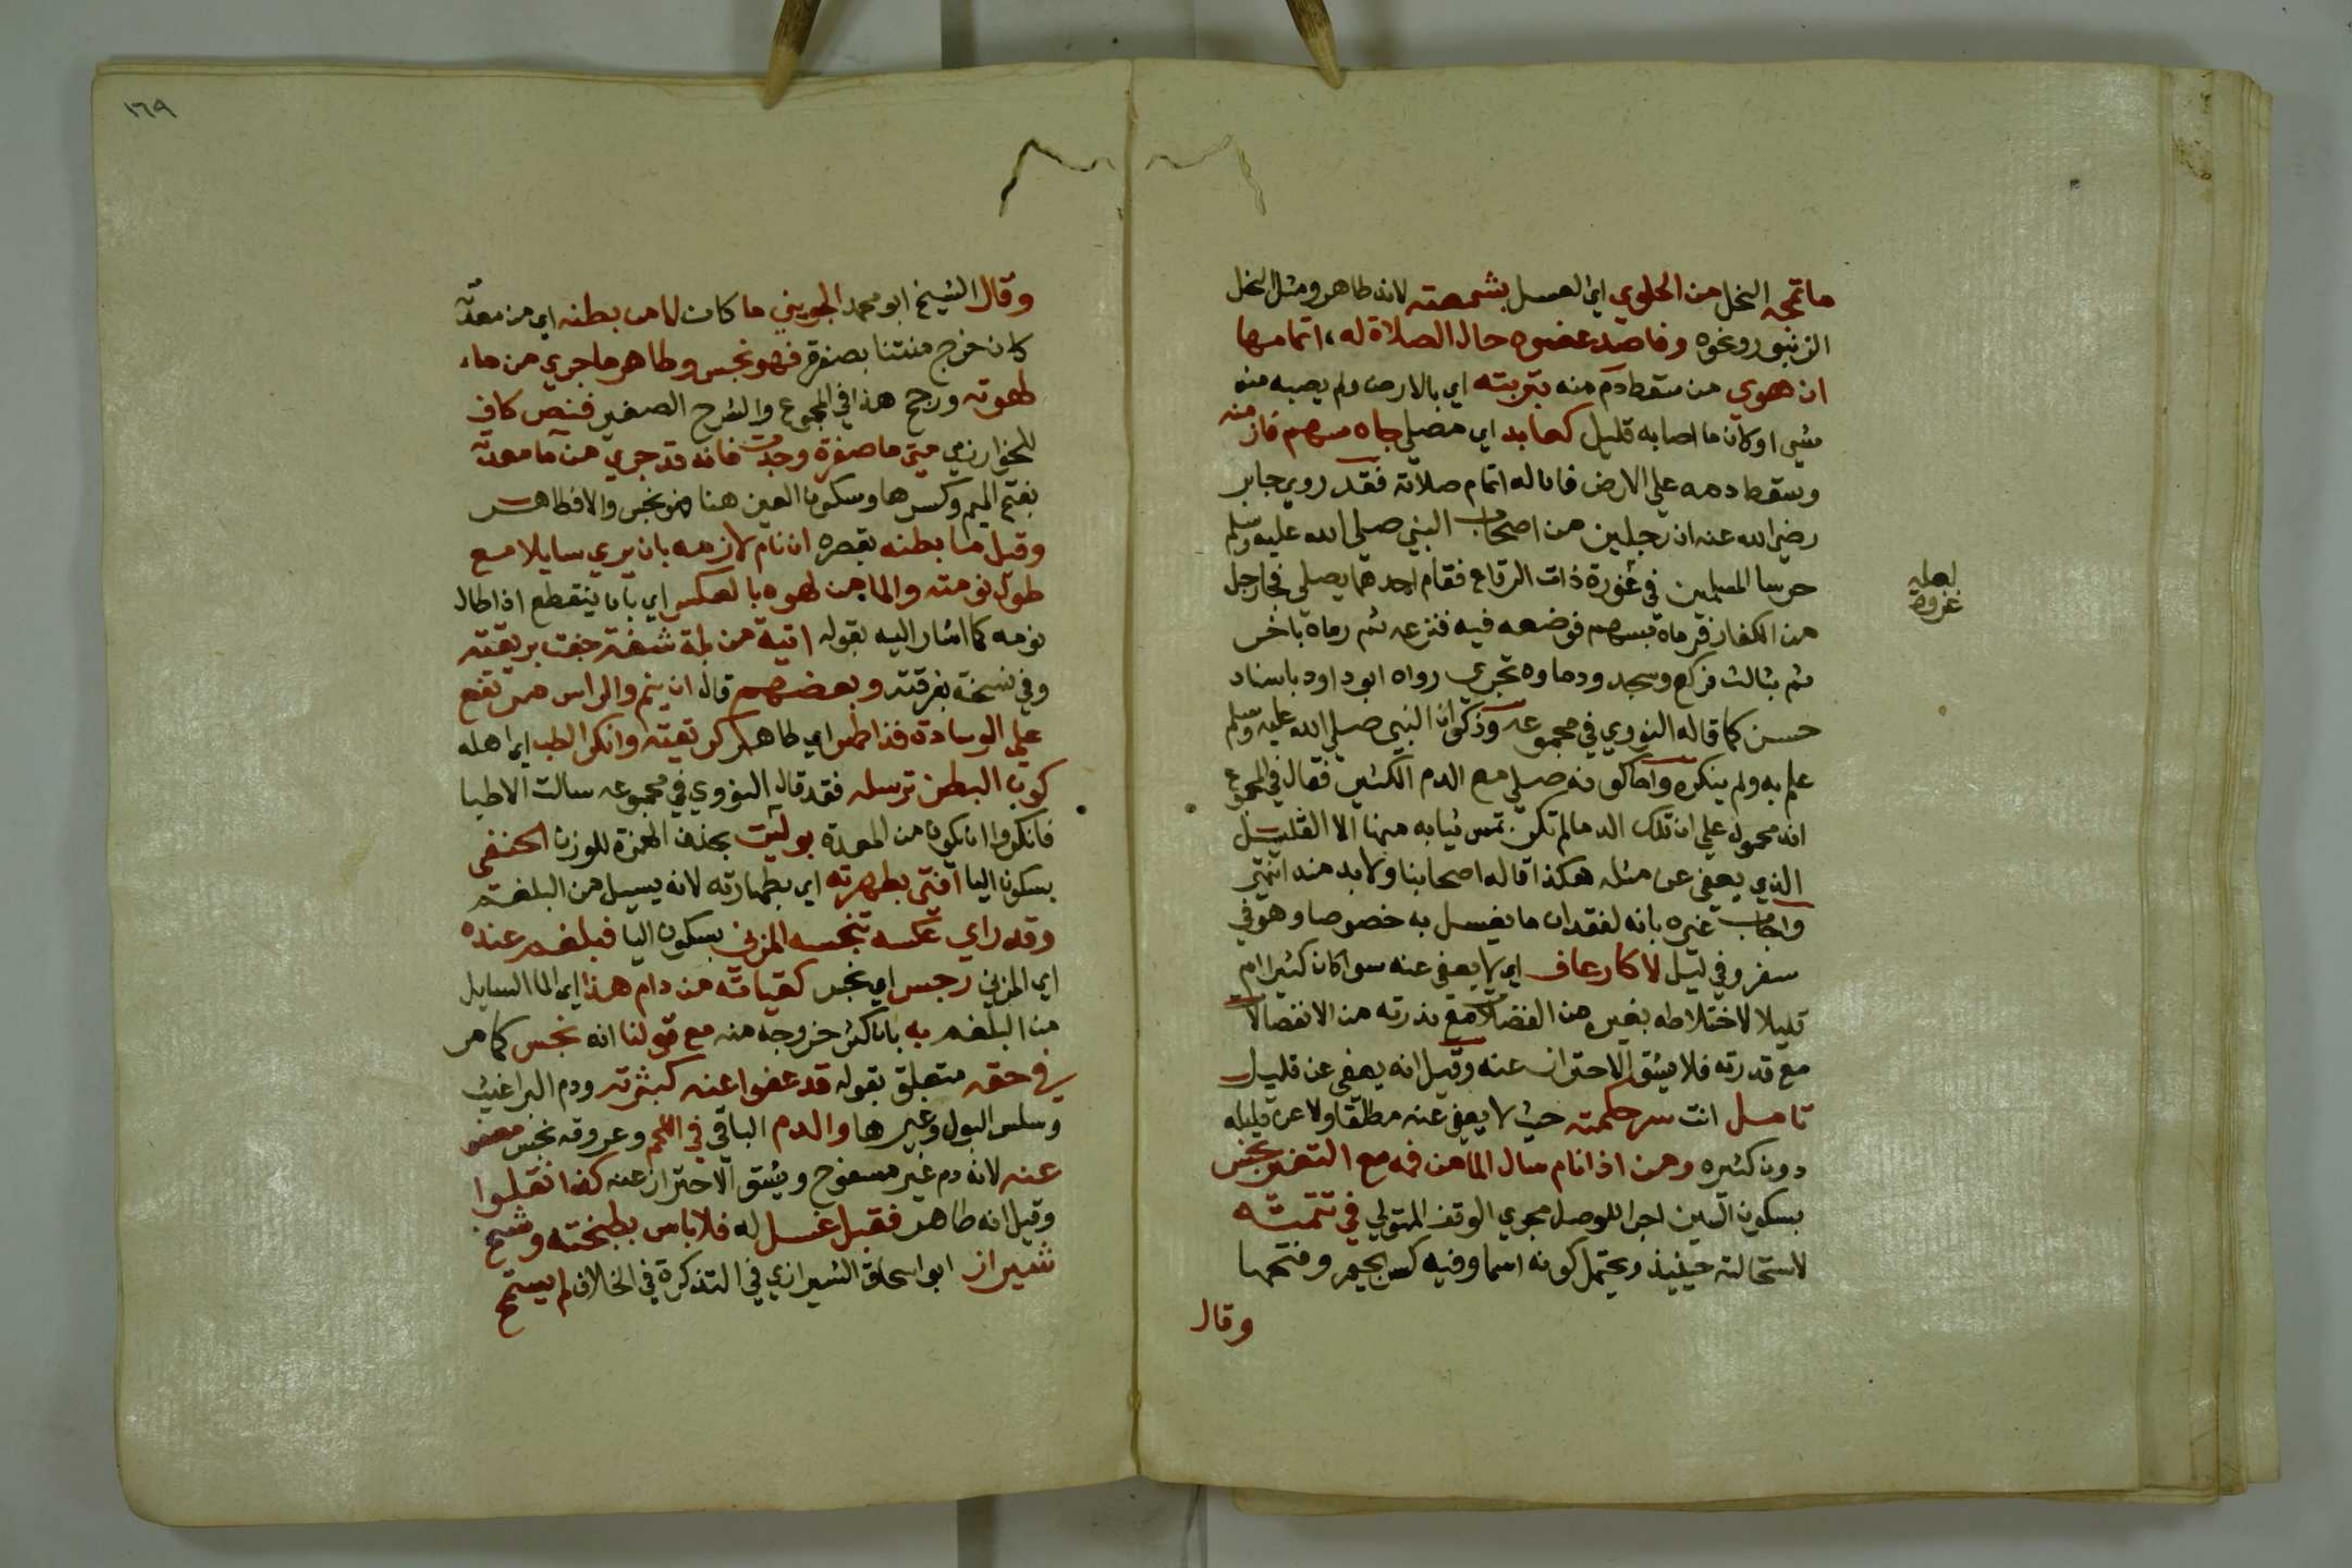 ما تمجه النحل من الحلوي اي العسل بشمعته لانه طاهر ومثل النحل
الزنبور ونحوه وفاصد عضوه حال الصلاة له اتمامها
ان هوي من سقط دم منه بتربته اي بالارض ولم يصبه منه
شي او كان ما اصابه قليل كعابد اي مصلي جاه سهم فاز منه
وسقط دمه علي الارض فان له اتمام صلاته فقد روي جابر
رضي الله عنه ان رجلين من اصحاب النبي صلي الله عليه وسلم
حرسا المسلمين في غورة ذات الرقاع فقام احدهما يصلي فجا رجل
من الكفار فرماه بسهم فوضعه فيه فنزعه ثم رماه باخر
ثم بثالث فركع وسجد ودماوه تجري رواه ابو داود باسناد
حسن كما قاله النووي في مجموعه وذكر ان النبي صلي الله عليه وسلم
علم به ولم ينكره واما كونه صلي مع الدم الكثير فقال في المجموع
انه محمول علي ان تلك الدما لم تكن تمس ثيابه منها الا القليل
الذي يعفي عن مثله هكذا قاله اصحابنا ولا بد منه انتهي
واجاب غيره بانه لفقدان ما يغسل به خصوصا وهو في
سفر وفي ليل لا كارعاف اي لا يعفي عنه سوا كان كثيرا ام
قليلا لاختلاطه بغيره من الفضلات مع ندرته من الانفصالات
مع قدرته فلا يشق الاحتراز عنه وقيل انه يعفي عن قليل
تامل انت سر حكمته حيث لا يعفي عنه مطلقا ولا عن قليله
دون كثيره ومن اذا نام سال الما من فمه مع التغير نجس
بسكون السين اجرا للوصل مجري الوقف المتولي في تتمته
لاستحالته حينيذ ويحتمل كونه اسما وفيه كسر الجيم وفتحها
وقال
لعله
غزوة
١٦٩
وقال الشيخ ابو محمد الجويني ما كان لما من بطنه اي من معدته
كان خرج منتنا بصفرة فهو نجس وطاهر ما جري من ماء
لهوته ورجح هذا في المجموع والشرح الصغير فنص كافي
للخوارزمي متي ما صفرة وجدت فانه قد جري من ما معدته
بفتح الميم وكسرها وسكون العين هنا فهو نجس والا فطاهر
وقيل ما بطنه بقصره ان نام لازمه بان يري سايلا مع
طول نومته والما من لهوه بالعكس اي بان ينقطع اذا طال
نومه كما اشار اليه بقوله اتية من بلة شفة جفت بريقته
وفي نسخة بفرقته وبعضهم قال ان ينم والراس مرتفع
علي الوسادة فذا طهر اي طاهر كريقته وانكر الطب اي اهله
كون البطن ترسله فقد قال النووي في مجموعه سالت الاطبا
فانكروا ان يكون من المعدة بو ليث بحذف الهمزة للوزن الحنفي
بسكون اليا افتي بطهرته اي بطهارته لانه يسيل من البلغم
وقد راي عكسه بنجسه المزني بسكون اليا فبلغم عنده
اي المزني رجس اي نجس كقياته من دام هذا اي الما السايل
من البلغم به بان كثر خروجه منه مع قولنا انه نجس كما مر
في حقه متعلق بقوله قد عفوا عنه كبثرته ودم البراغيث
وسلس البول وغيرها والدم الباقي في اللحم وعروقه نجس معفو
عنه لانه دم غير مسفوح ويشق الاحتراز عنه كذا نقلوا
وقيل انه طاهر فقبل غسل له فلا باس بطبخته وشيخ
شيراز ابو اسحاق الشيرازي في التذكرة في الخلاف لم يستبح